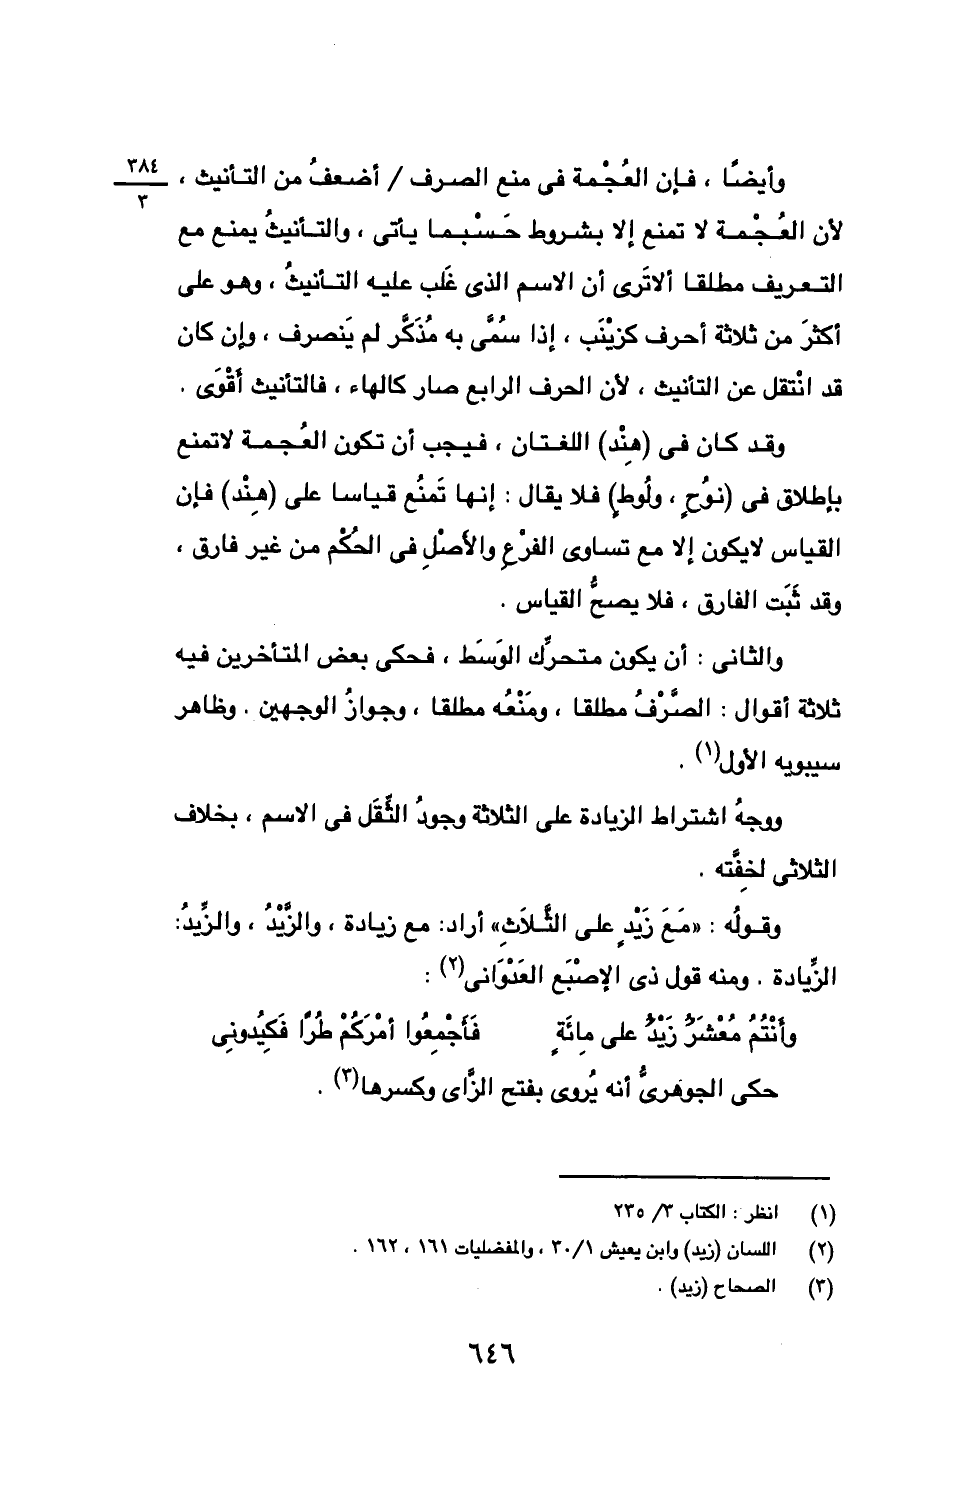 وأيضًا ، فإن العُجْمة فى منع الصرف / أضعفُ من التأنيث ، ٣٨٤
٣
لأن العُجْمة لا تمنع إلا بشروط حَسْبما يأتى ، والتأنيثُ يمنع مع
التعريف مطلقا ألاتَرى أن الاسم الذى غَلَب عليه التأنيثُ ، وهو على
أكثرَ من ثلاثة أحرف كزيْنَب ، إذا سُمَّى به مُذَكَّر لم يَنصرف ، وإن كان
قد انْتقل عن التأنيث ، لأن الحرف الرابع صار كالهاء ، فالتأنيث أقْوَى .
وقد كان فى (هِنْد) اللغتان ، فيجب أن تكون العُجمة لاتمنع
بإطلاق فى (نوُحٍ ، ولُوطٍ) فلا يقال : إنها تَمنُع قياسا على (هِنْد) فإن
القياس لايكون إلا مع تساوى الفرْعِ والأصْلِ فى الحُكْم من غير فارق ،
وقد ثَبَت الفارق ، فلا يصحُّ القياس .
والثانى : أن يكون متحرِّك الوَسَط ، فحكى بعض المتأخرين فيه
ثلاثة أقوال : الصَّرْفُ مطلقا ، ومَنْعُه مطلقا ، وجوازُ الوجهين . وظاهر
سيبويه الأول(١) .
ووجهُ اشتراط الزيادة على الثلاثة وجودُ الثِّقَل فى الاسم ، بخلاف
الثلاثى لخِفَّته .
وقولُه : «مَعَ زَيْدٍ على الثَّلاَثِ» أراد: مع زيادة ، والزَّيْدُ ، والزِّيدُ:
الزِّيادة . ومنه قول ذى الإصْبَع العَدْوَانى(٢) :
وأنْتُمُ مُعْشَرٌ زَيْدٌ على مِائَةٍ فَأجْمِعُوا أمْرَكُمْ طُرًا فَكِيُدونِى
حكى الجوهَرىُّ أنه يُروى بفتح الزَّاى وكسرها(٣) .
(١) انظر : الكتاب ٣/ ٢٣٥
(٢) اللسان (زيد) وابن يعيش ٣٠/١ ، والمفضليات ١٦١ ، ١٦٢ .
(٣) الصحاح (زيد) .
٦٤٦